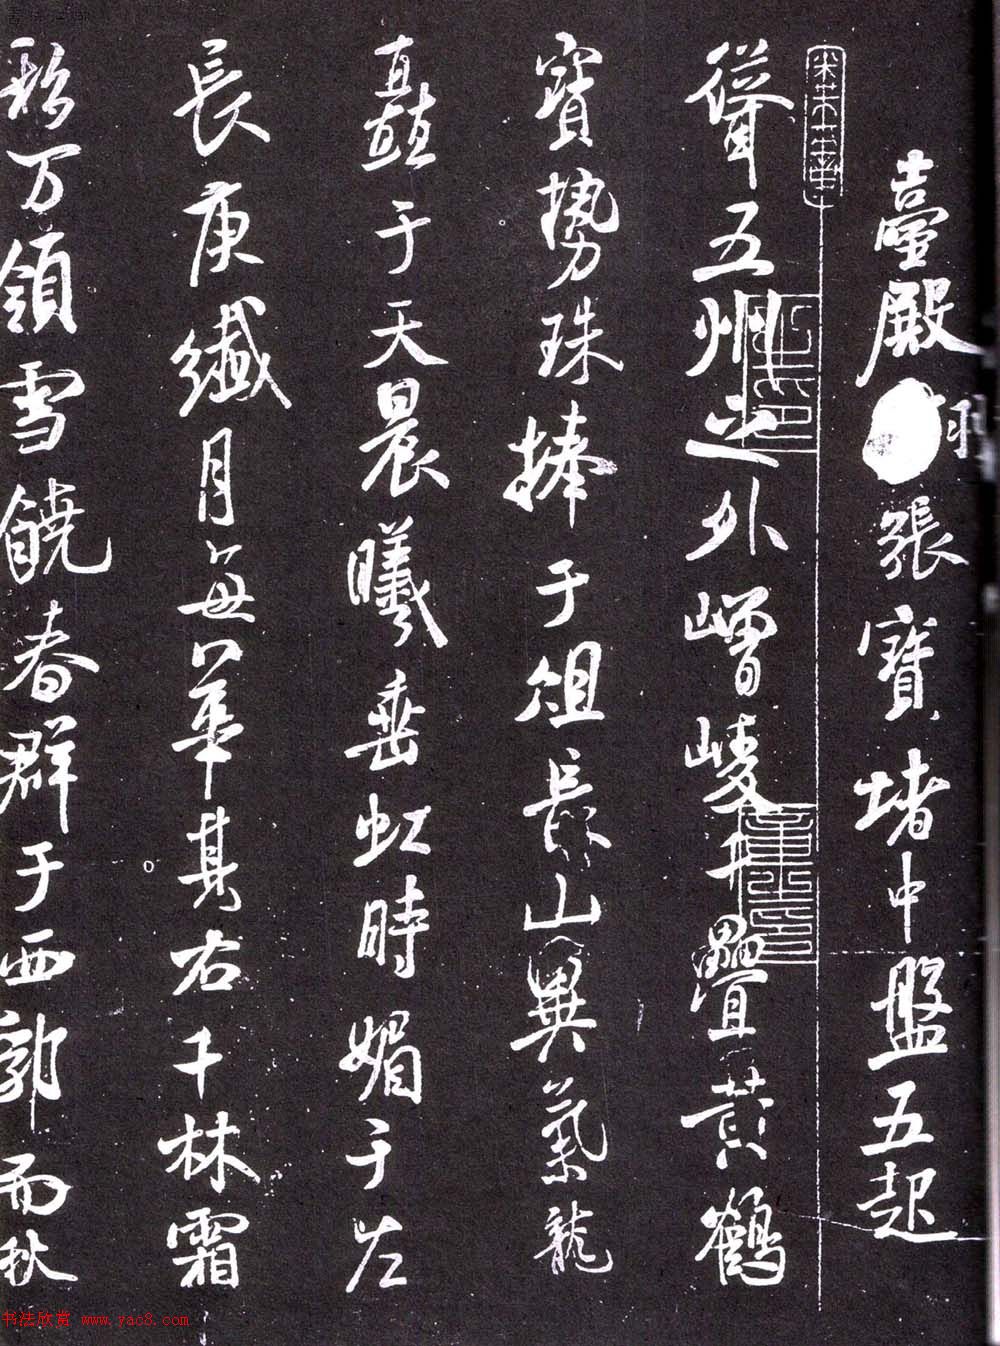 臺殿羽張寶堵中盤五起
聳五州之外嶒崚千疊黃鶴
寶勢珠捧于俎長山異氣龍
矗于天晨曦垂虹時媚于左
長庚纖月每華其右千林霜
万領雪饒春群于西郭而秋
书法欣赏 www.yac8.com